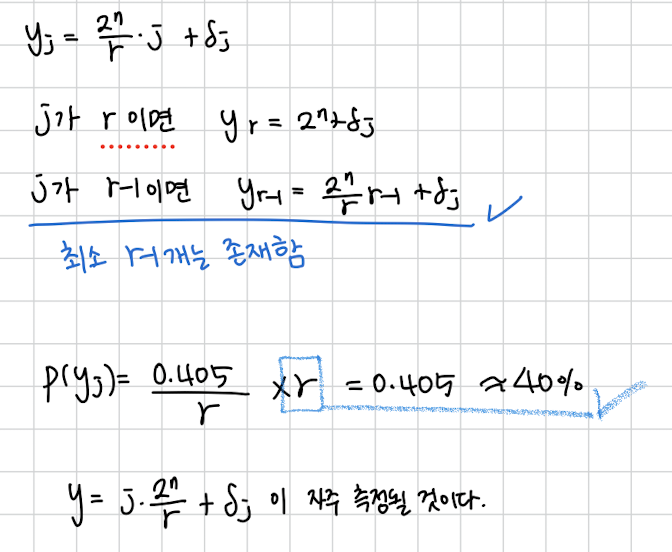 yj = 2ⁿ/r · j + δj
j가 r 이면 yr = 2ⁿ+δj
j가 r-1이면 yr-1 = 2ⁿ/r r-1 + δj
최소 r-1개는 존재함
P(yj)= 0.405/r × r = 0.405 ≈ 40%
y = j· 2ⁿ/r + δj 이 자주 측정될 것이다.